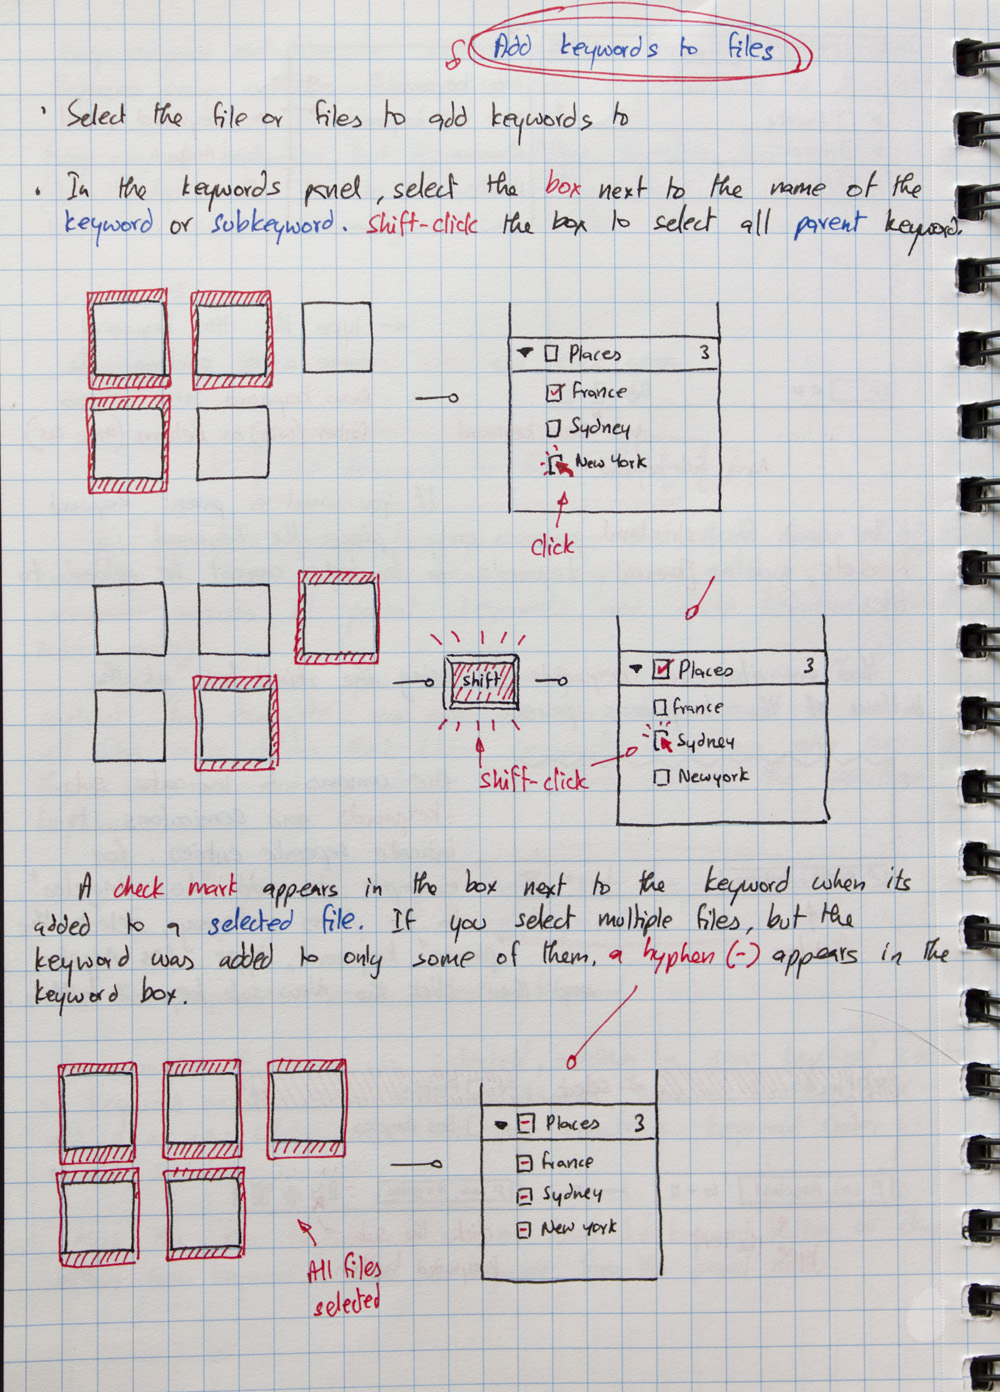 Add keywords to files
• Select the file or files to add keywords to
• In the keywords panel, select the box next to the name of the
keyword or subkeyword. Shift-click the box to select all parent keyword.
Places 3
France
Sydney
New York
Click
shift
Shift-click
Places 3
France
Sydney
New york
A check mark appears in the box next to the keyword when its
added to a selected file. If you select multiple files, but the
keyword was added to only some of them, a hyphen (-) appears in the
keyword box.
Places 3
France
Sydney
New york
All files
selected